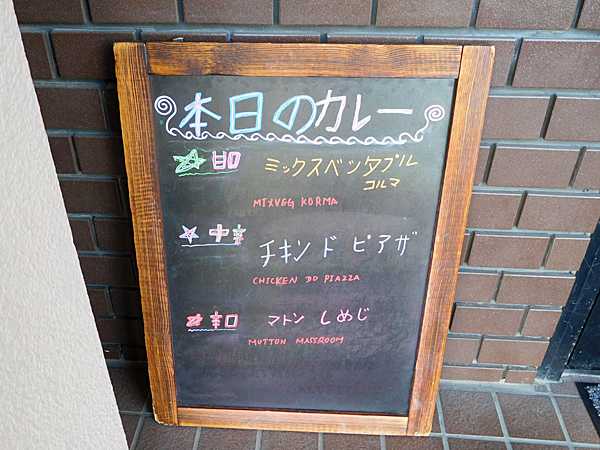 本日のカレー
☆甘口 ミックスベンタブル
コルマ
MIXVEG KORMA
☆中辛 チキンドピアザ
CHICKEN DO PIAZZA
辛口 マトン しめじ
MUTTON MASSROOM